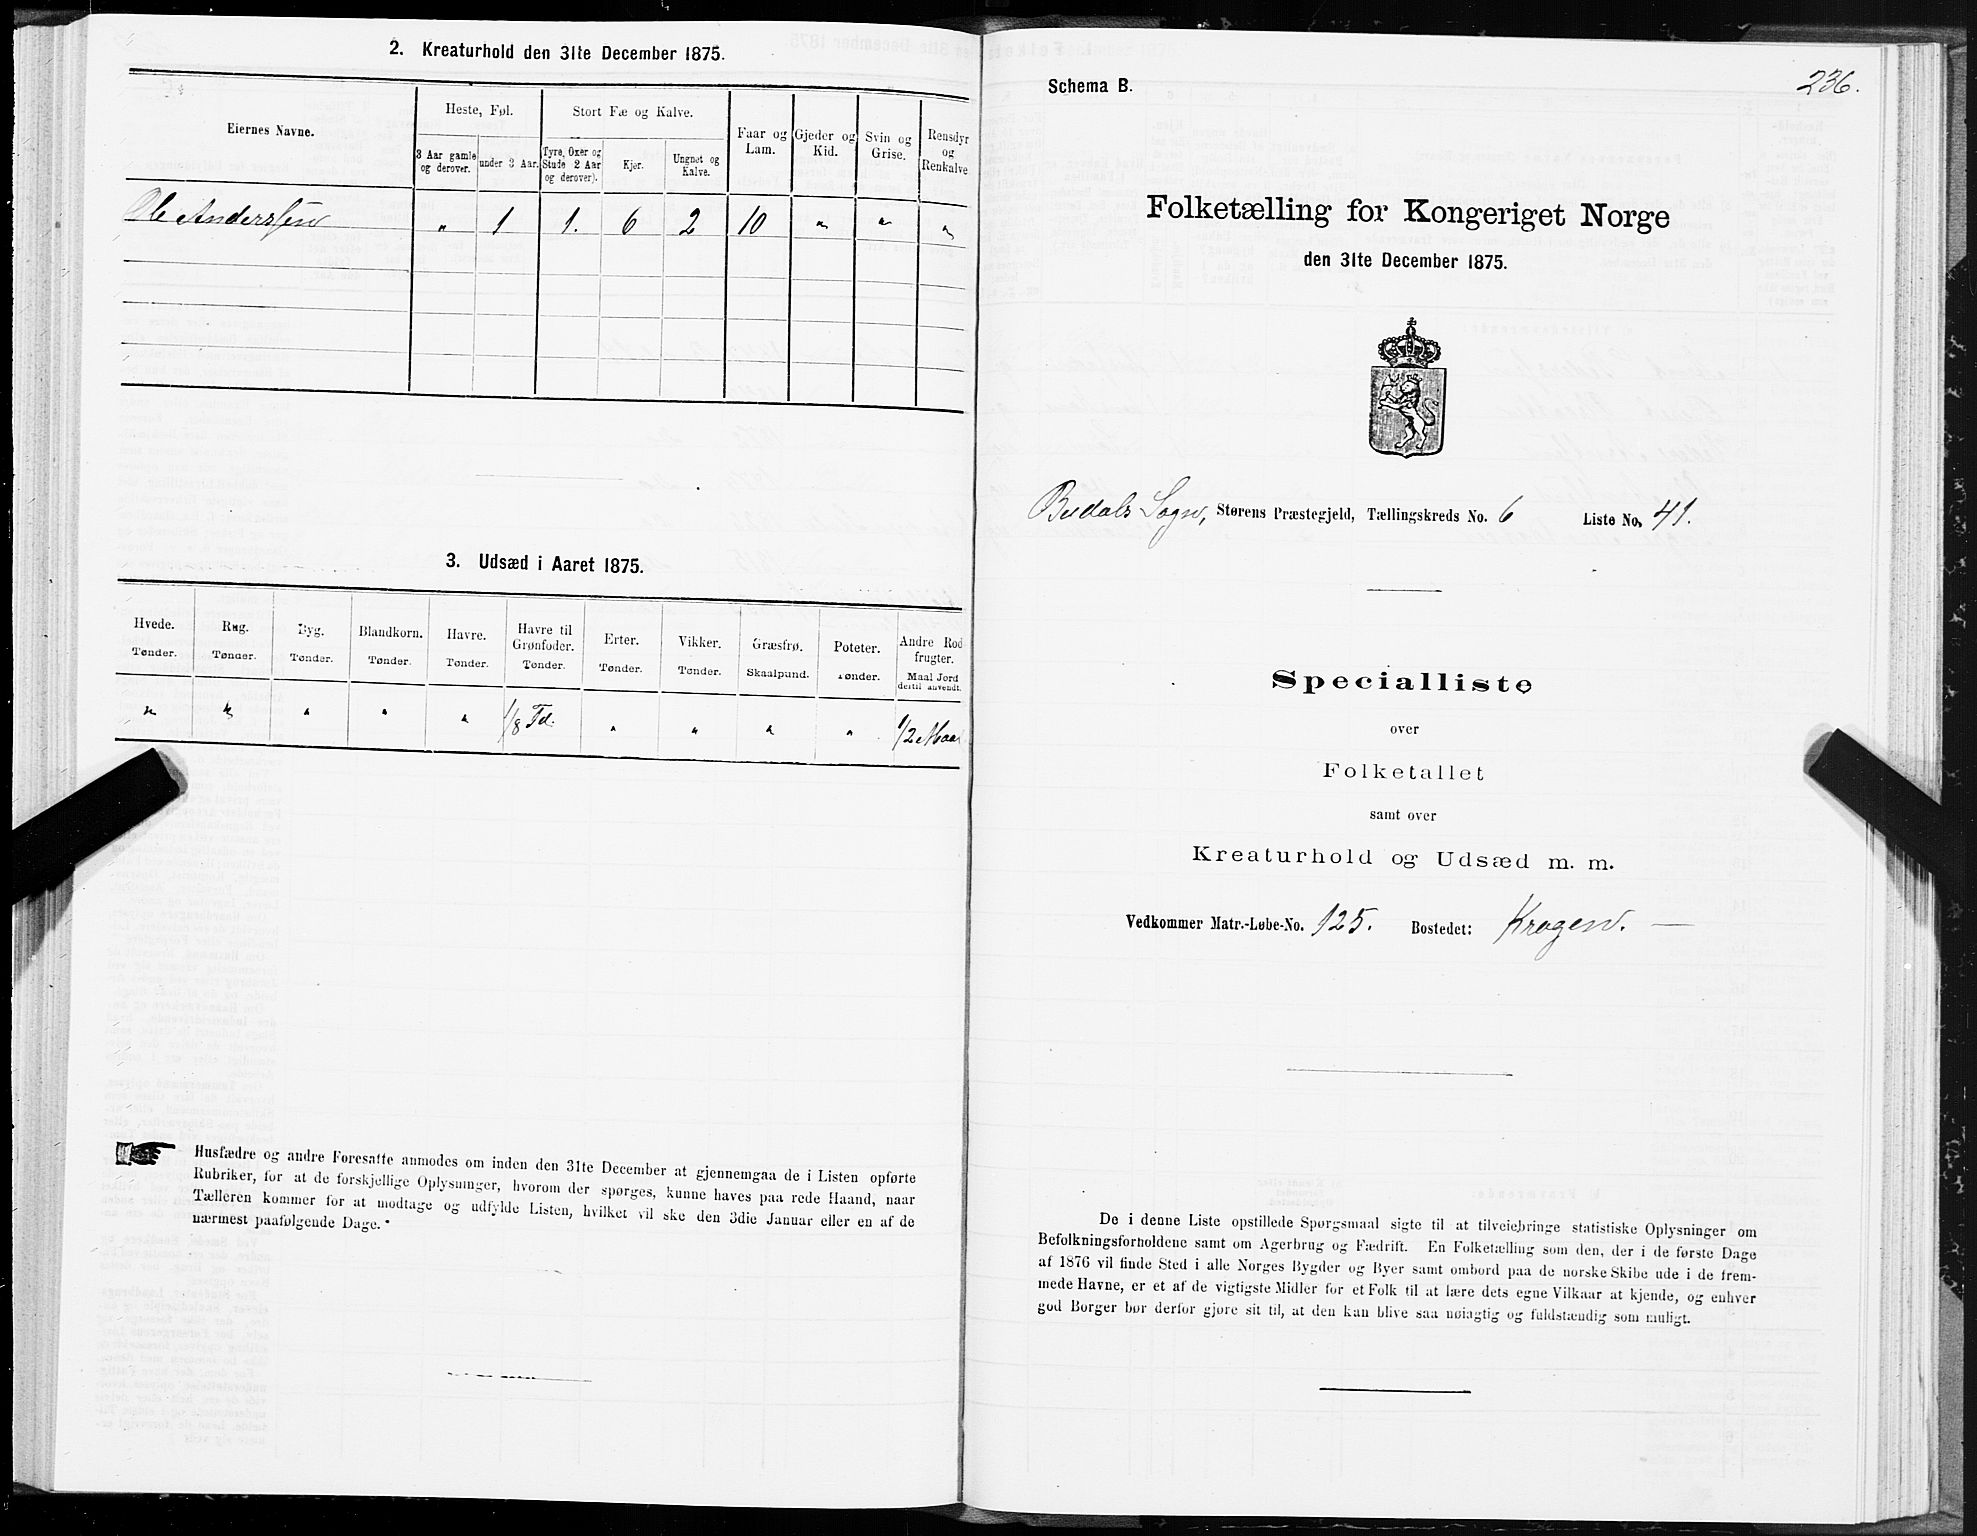 2. Kreaturhold den 31te December 1875.
Eiernes Navne.
Heste, Føl.
Stort Fæ og Kalve.
Faar og Lam.
Gjeder og Kid.
Svin og Grise.
Rensdyr og Renkalve
3 Aar gamle og derover.
under 3 Aar.
Tyre, Oxer og Stude 2 Aar og derover).
Kjer.
Ungnet og Kalve.
Ole Anderssen " 1 1. 6 2 10 " " "
3. Udsæd i Aaret 1875.
Hvede. Rug. Byg. Blandkorn. Havre. Havre til Grønfoder. Erter. Vikker. Græsfrø. Poteter. Andre Rod frugter.
Tønder. Tønder. Tønder. Tønder. Tønder. Tønder. Tønder. Tønder. Skaalpund. Tønder. Maal Jord dertil anvendt.
" " " " " 1/8 Td. " " " " 1/2 Maal
Husfædre og andre Foresatte anmodes om inden den 31te December at gjennemgaa de i Listen opførte
Rubriker, for at de forskjellige Oplysninger, hvorom der spørges, kunne haves paa rede Haand, naar
Tælleren kommer for at modtage og udfylde Listen, hvilket vil ske den 3die Januar eller en af de
nærmest paafølgende Dage.
236.
Schema B.
Folketælling for Kongeriget Norge
den 31te December 1875.
Budals Sogn, Størens Præstegjeld, Tællingskreds No. 6 Liste No. 41.
Specialliste
over
Folketallet
samt over
Kreaturhold og Udsæd m. m.
Vedkommer Matr.-Løbe-No. 125. Bostedet: Kragen. —
De i denne Liste opstillede Spørgsmaal sigte til at tilveiebringe statistiske Oplysninger om
Befolkningsforholdene samt om Agerbrug og Fædrift. En Folketælling som den, der i de første Dage
af 1876 vil finde Sted i alle Norges Bygder og Byer samt ombord paa de norske Skibe ude i de frem-
mede Havne, er et af de vigtigste Midler for et Folk til at lære dets egne Vilkaar at kjende, og enhver
god Borger bør derfor gjøre sit til, at den kan blive saa nøiagtig og fuldstændig som muligt.